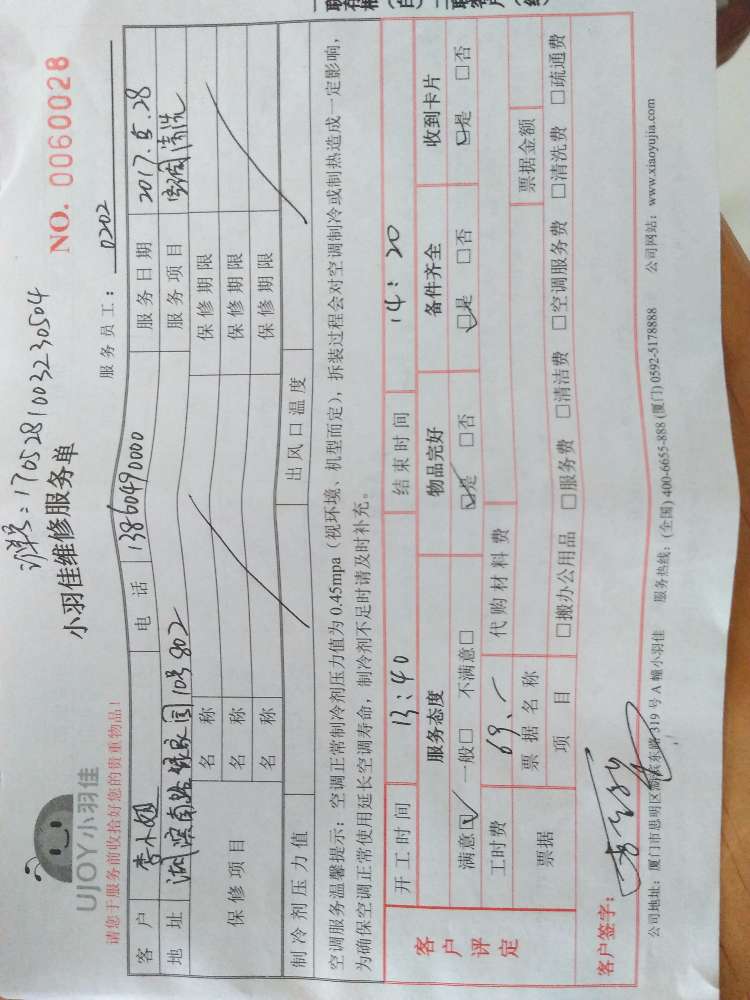 订单号:1705281003230504
UJOY小羽佳
小羽佳维修服务单
NO. 0060028
请您于服务前收拾好您的贵重物品!
服务员工: 0202
客户 李小姐 电话 13860490000 服务日期 2017.5.28
地址 湖滨南路 家园10号802 服务项目 空调清洗
保修项目 名称 保修期限
名称 保修期限
名称 保修期限
制冷剂压力值 出风口温度
空调服务温馨提示:空调正常制冷剂压力值为0.45mpa(视环境、机型而定),拆装过程会对空调制冷或制热造成一定影响,
为确保空调正常使用延长空调寿命,制冷剂不足时请及时补充。
开工时间 13:40 结束时间 14:20
客户评定 服务态度 物品完好 备件齐全 收到卡片
满意☑ 一般□ 不满意□ ☑是 □否 ☑是 □否 ☑是 □否
工时费 69.- 代购材料费
票据 票据名称 票据金额
项目 □搬办公用品 □服务费 □清洁费 □空调服务费 □清洗费 □疏通费
客户签字:
公司地址:厦门市思明区湖滨东路319号A幢小羽佳 服务热线:(全国)400-6655-888 (厦门)0592-5178888 公司网站:www.xiaoyujia.com